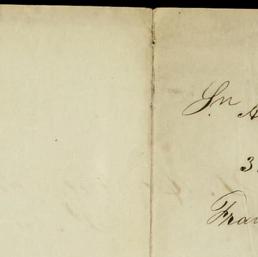 Sn A
3
Fra